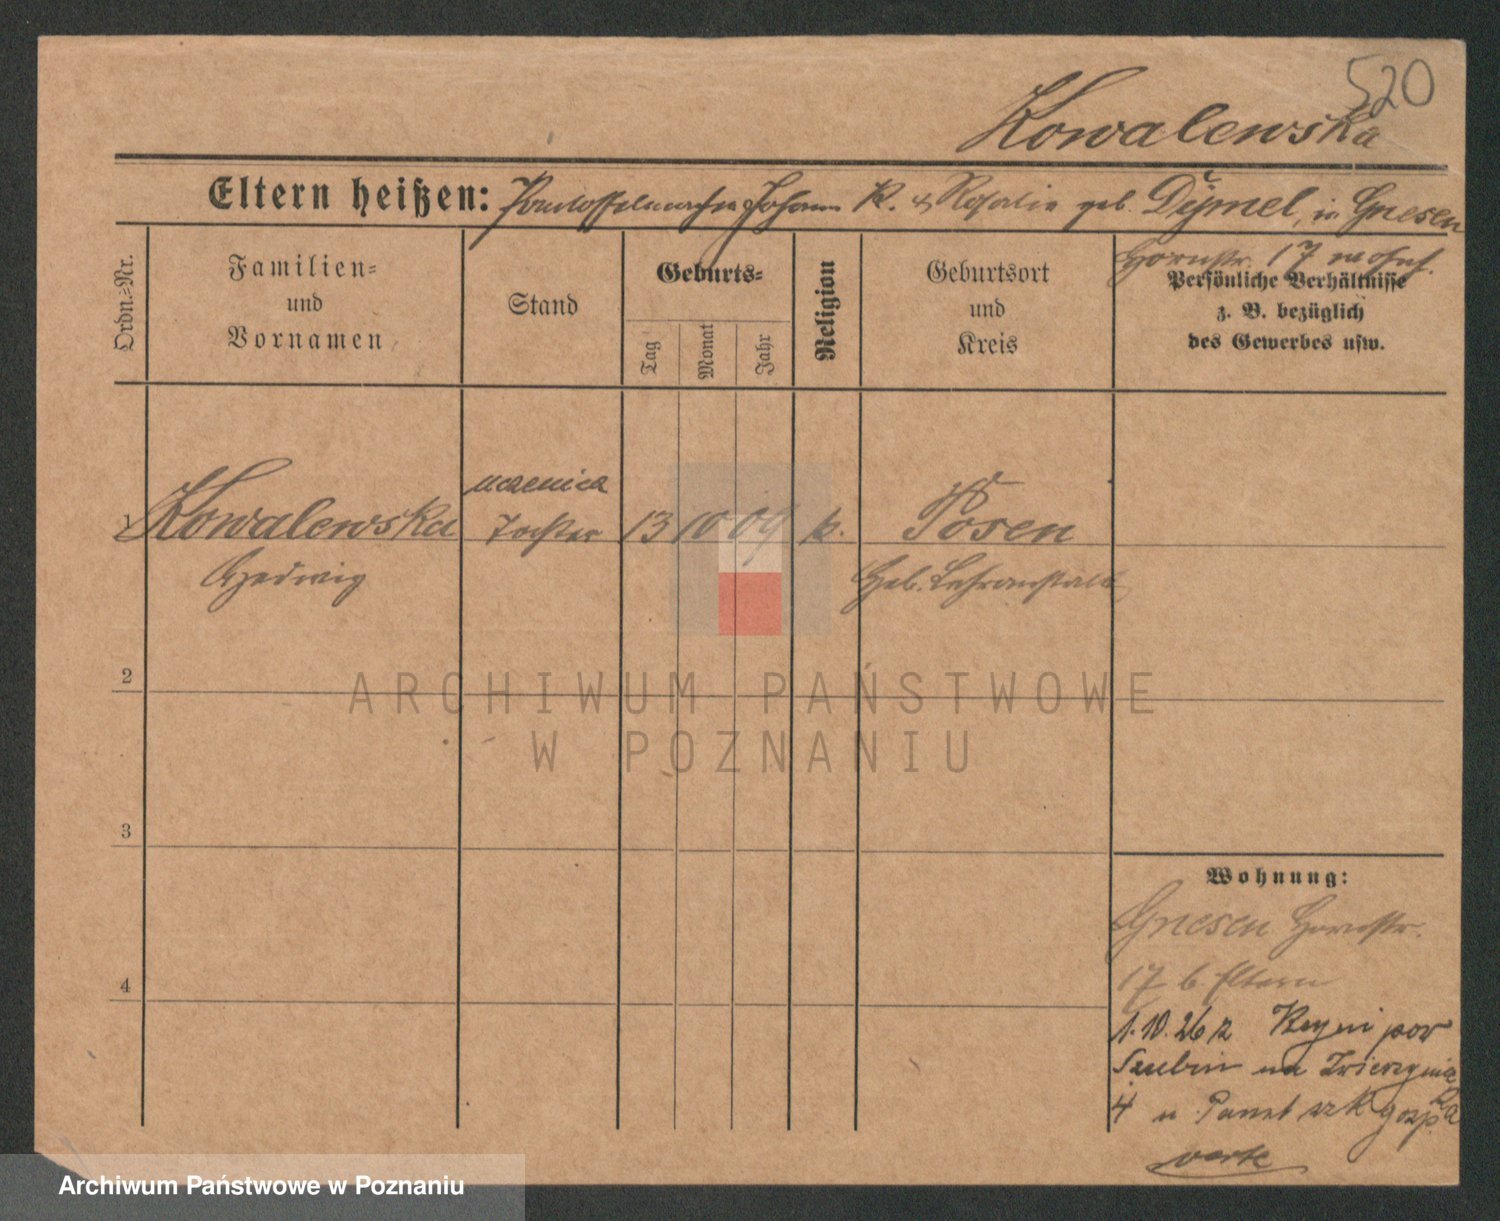 520
Kowalewska
Eltern heißen: Johann K. u. Rosalie geb. Dymel, in Gnesen
Hornstr. 17 wohnh.
Ordn.=Nr.
Familien=
und
Vornamen
Stand
Geburts=
Tag
Monat
Jahr
Religion
Geburtsort
und
Kreis
Persönliche Verhältnisse
z. B. bezüglich
des Gewerbes usw.
uczenica
1 Kowalewska Tochter 13 10 09 k. Posen
Hedwig Heb. Lehranstalt
2
3
4
ARCHIWUM PAŃSTWOWE
W POZNANIU
Wohnung:
Gnesen Hornstr.
17 b. Eltern
1.10.26 z Kcyni pow
Szubin na Zwierzyniecka
4 u Państ szk gosp.
verte
Archiwum Państwowe w Poznaniu